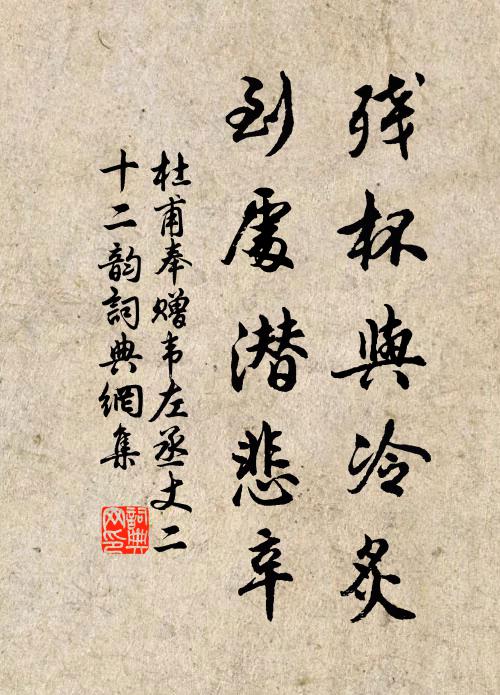 残杯與冷炙
到處潜悲辛
杜甫奉赠韦左丞丈二
十二韵詞典網集
詞典
网印